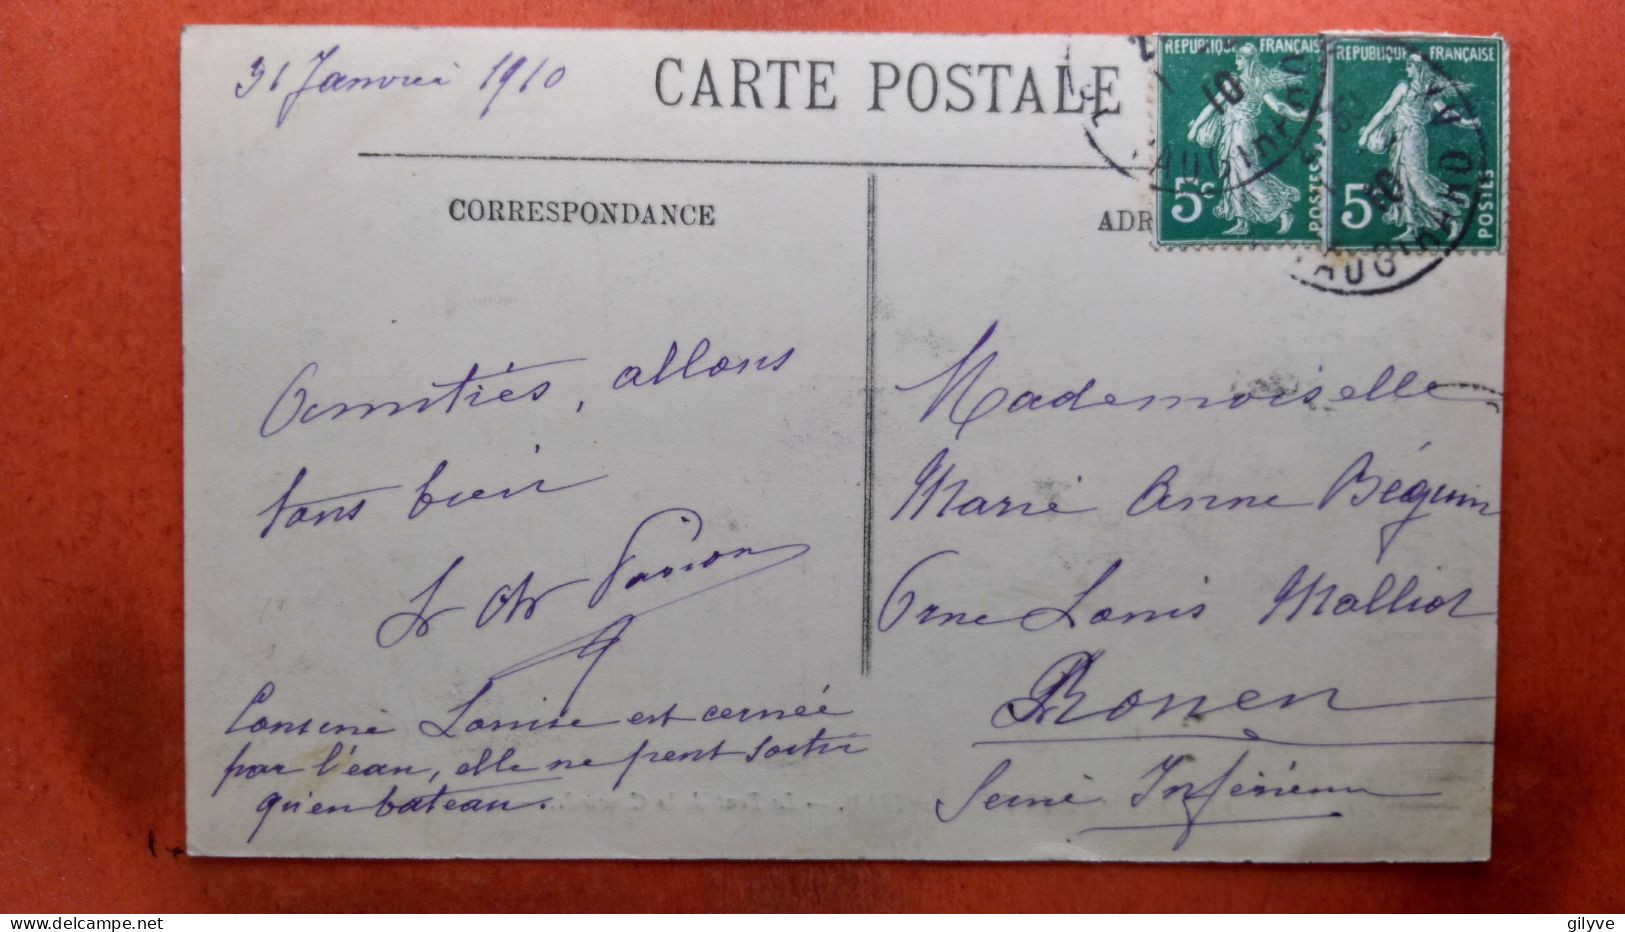 31 Janvier 1910
CARTE POSTALE
CORRESPONDANCE
ADR
REPUBLIQUE FRANÇAISE
5c
POSTES
REPUBLIQUE FRANÇAISE
5
POSTES
10
VAUGIRARD
10
VAUGIRARD
Amitiés, allons
tous bien
Cousine Louise est cernée
par l'éau, elle ne peut sortir
qu'en bateau.
Mademoiselle
Marie Anne Béguin
6 rue Louis Malliot
Rouen
Seine Inférieure
gilyve